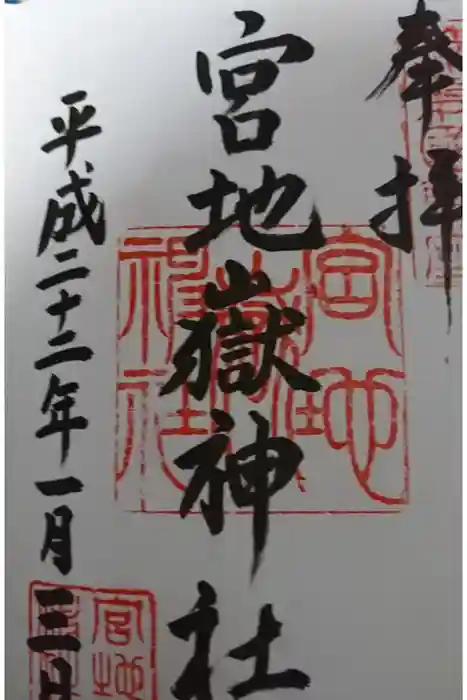 奉拝
宮地嶽神社
平成二十二年一月三日
宮地嶽神社
宮地